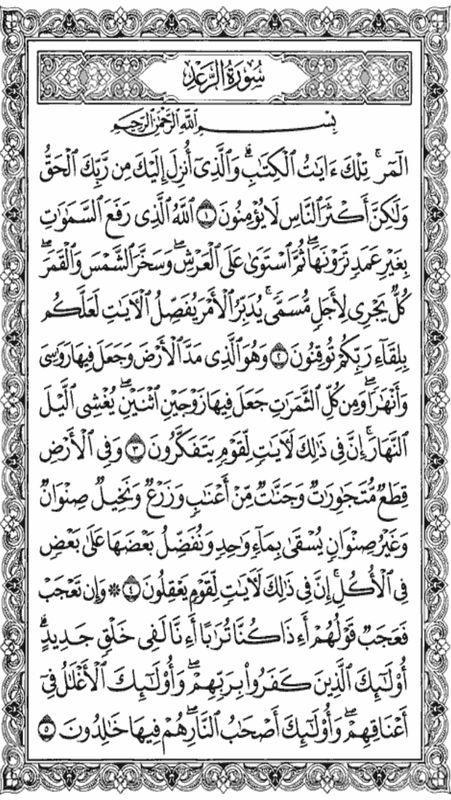 سُورَةُ الرَّعْدِ
بِسْمِ ٱللَّهِ ٱلرَّحْمَٰنِ ٱلرَّحِيمِ
الٓمٓرۚ تِلْكَ ءَايَٰتُ ٱلْكِتَٰبِۗ وَٱلَّذِىٓ أُنزِلَ إِلَيْكَ مِن رَّبِّكَ ٱلْحَقُّ
وَلَٰكِنَّ أَكْثَرَ ٱلنَّاسِ لَا يُؤْمِنُونَ ١ ٱللَّهُ ٱلَّذِى رَفَعَ ٱلسَّمَٰوَٰتِ
بِغَيْرِ عَمَدٍ تَرَوْنَهَاۖ ثُمَّ ٱسْتَوَىٰ عَلَى ٱلْعَرْشِۖ وَسَخَّرَ ٱلشَّمْسَ وَٱلْقَمَرَۖ
كُلٌّ يَجْرِى لِأَجَلٍ مُّسَمًّىۚ يُدَبِّرُ ٱلْأَمْرَ يُفَصِّلُ ٱلْءَايَٰتِ لَعَلَّكُم
بِلِقَآءِ رَبِّكُمْ تُوقِنُونَ ٢ وَهُوَ ٱلَّذِى مَدَّ ٱلْأَرْضَ وَجَعَلَ فِيهَا رَوَٰسِىَ
وَأَنْهَٰرًاۖ وَمِن كُلِّ ٱلثَّمَرَٰتِ جَعَلَ فِيهَا زَوْجَيْنِ ٱثْنَيْنِۖ يُغْشِى ٱلَّيْلَ
ٱلنَّهَارَۚ إِنَّ فِى ذَٰلِكَ لَءَايَٰتٍ لِّقَوْمٍ يَتَفَكَّرُونَ ٣ وَفِى ٱلْأَرْضِ
قِطَعٌ مُّتَجَٰوِرَٰتٌ وَجَنَّٰتٌ مِّنْ أَعْنَٰبٍ وَزَرْعٌ وَنَخِيلٌ صِنْوَانٌ
وَغَيْرُ صِنْوَانٍ يُسْقَىٰ بِمَآءٍ وَٰحِدٍ وَنُفَضِّلُ بَعْضَهَا عَلَىٰ بَعْضٍ
فِى ٱلْأُكُلِۚ إِنَّ فِى ذَٰلِكَ لَءَايَٰتٍ لِّقَوْمٍ يَعْقِلُونَ ٤ ۞ وَإِن تَعْجَبْ
فَعَجَبٌ قَوْلُهُمْ أَءِذَا كُنَّا تُرَٰبًا أَءِنَّا لَفِى خَلْقٍ جَدِيدٍۗ
أُو۟لَٰٓئِكَ ٱلَّذِينَ كَفَرُوا۟ بِرَبِّهِمْۖ وَأُو۟لَٰٓئِكَ ٱلْأَغْلَٰلُ فِىٓ
أَعْنَاقِهِمْۖ وَأُو۟لَٰٓئِكَ أَصْحَٰبُ ٱلنَّارِۖ هُمْ فِيهَا خَٰلِدُونَ ٥